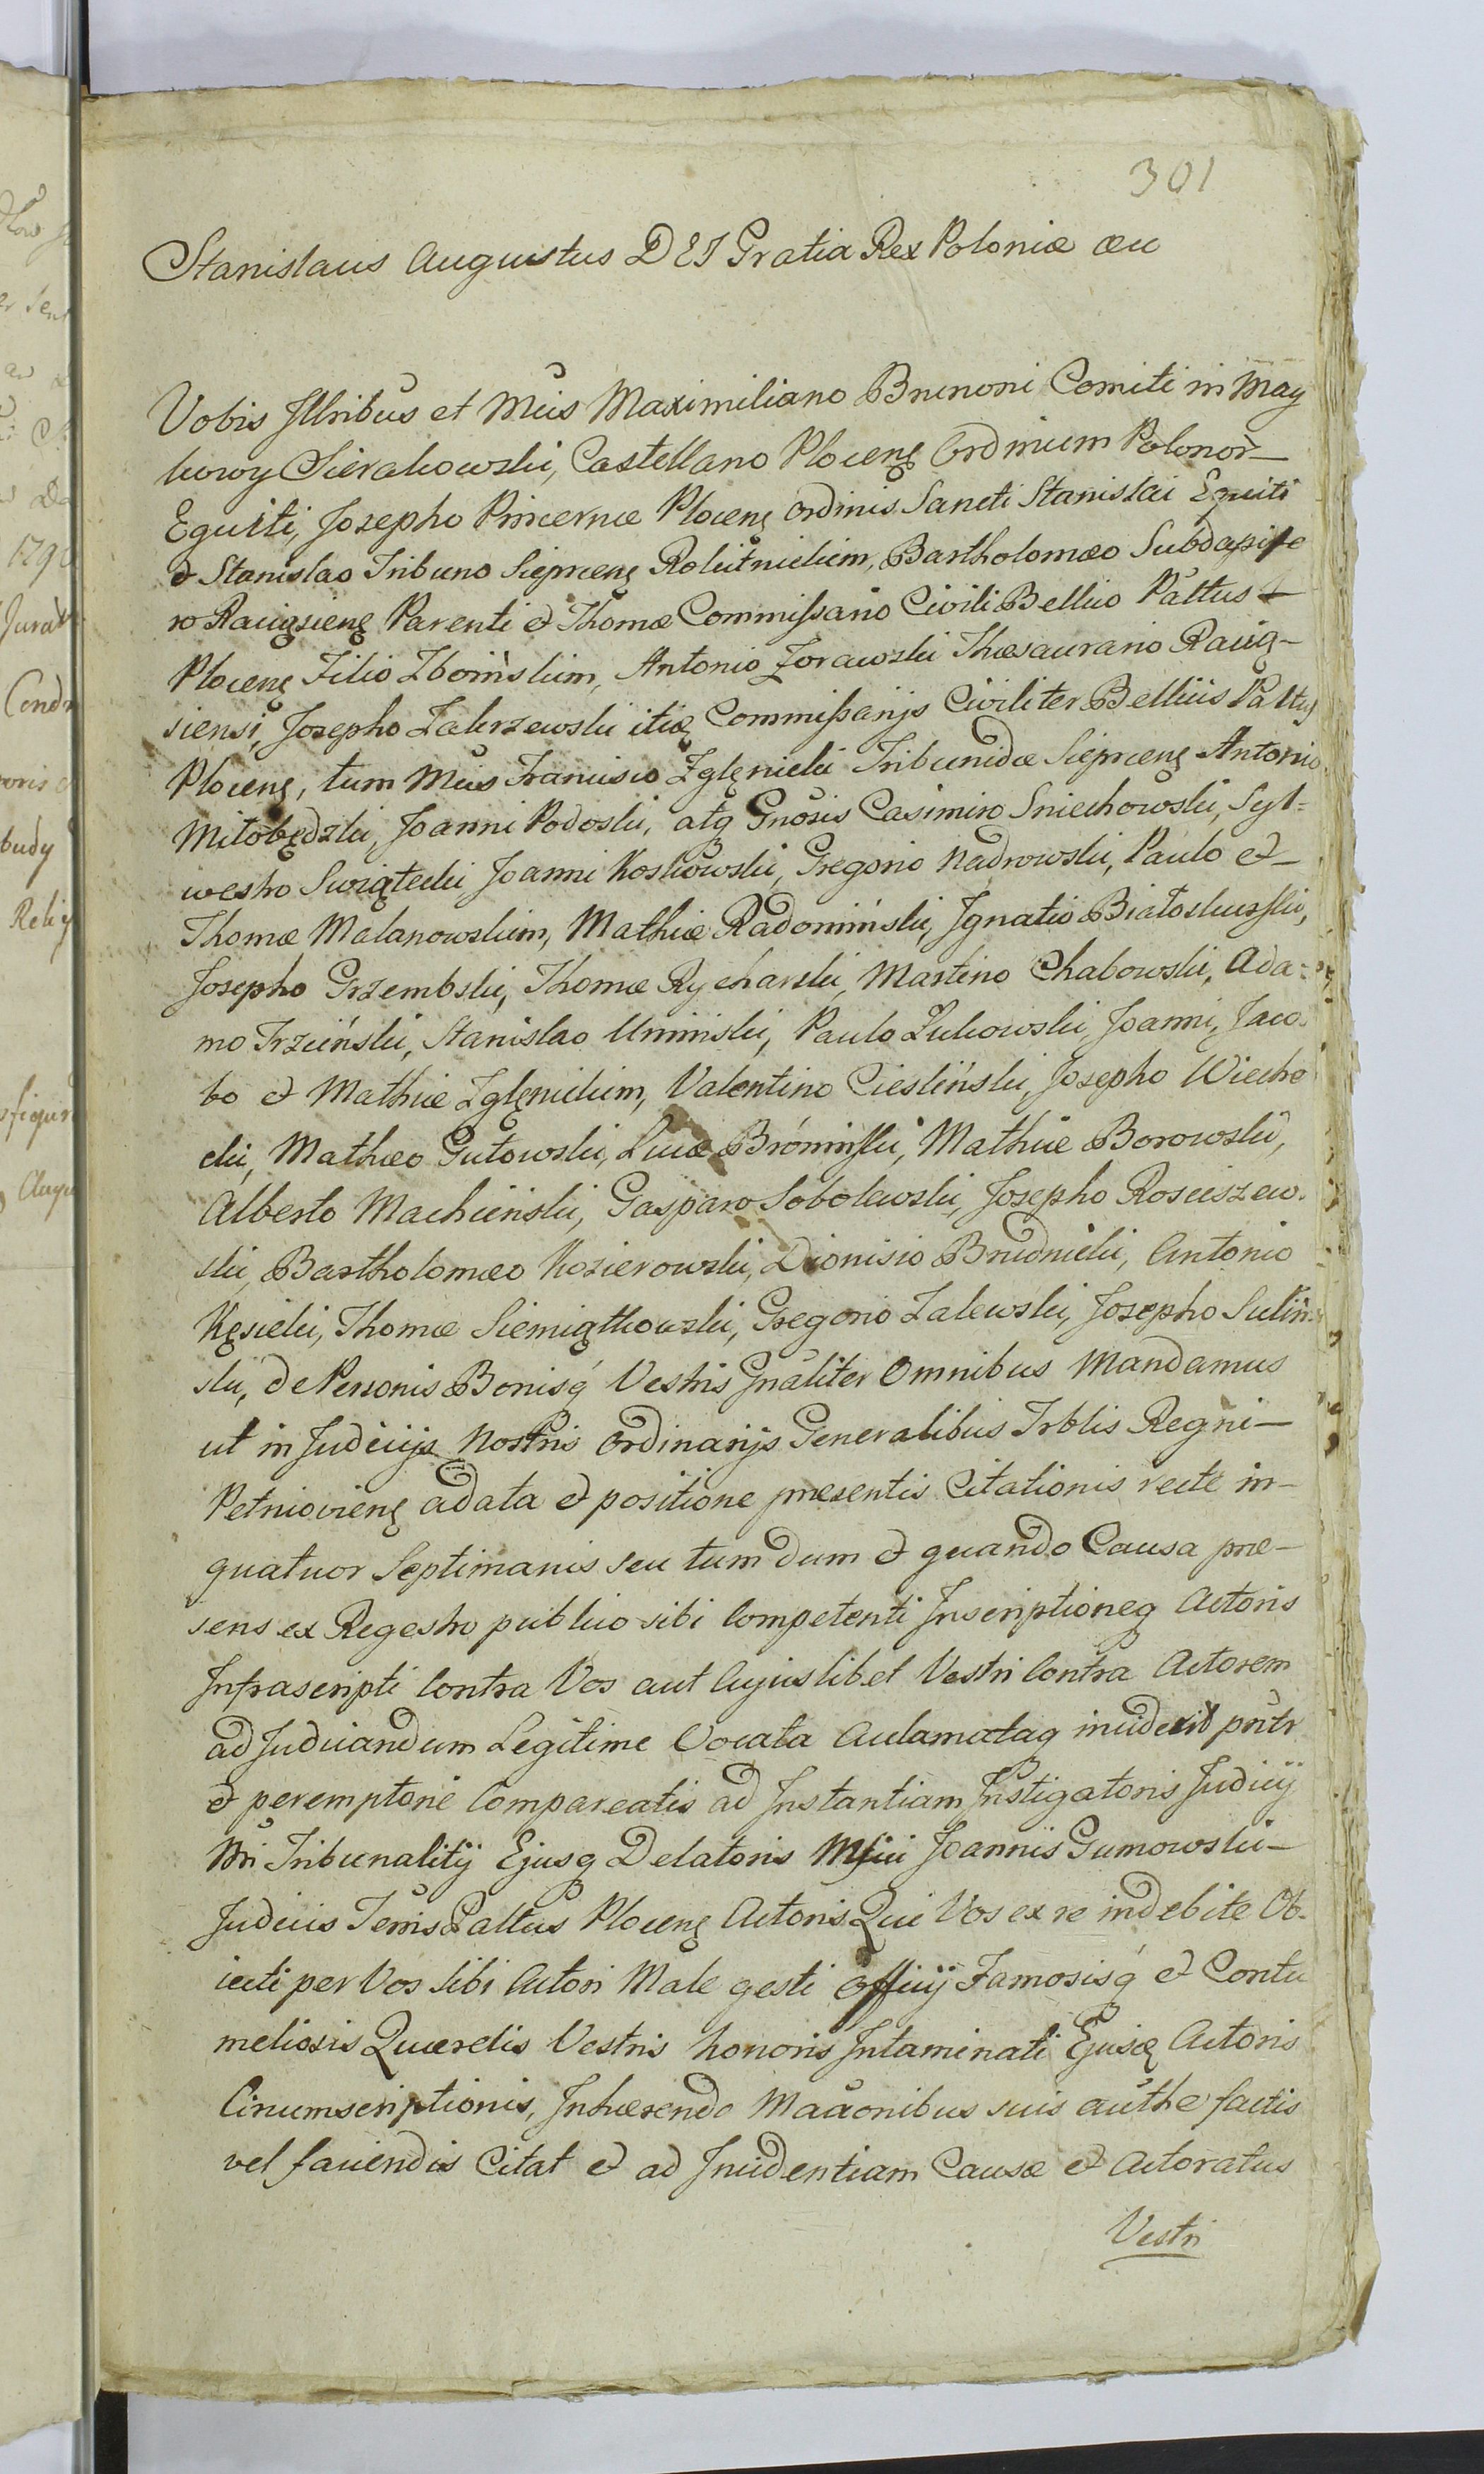 301
Stanislaus Augustus DEI Gratia Rex Poloniæ &cc
Vobis Illribus et Mcis Maximiliano Brunoni Comiti in May
kowy Sierakowski, Castellano Plocensi Ordinum Polonor
Equiti, Josepho Pincernæ Plocens Ordinis Sancti Stanislai Equiti
& Stanislao Tribuno Sieprcens Rokitnickim, Bartholomæo Subdapife
ro Raciąziens Parenti & Thomæ Commissario Civili Bellico Palttus
Plocens Filio Zboińskim, Antonio Żorawski Thesaurario Racią-
siensi, Josepho Zakrzewski itiq Commissarijs Civiliter Bellicis Palttus
Plocens, tum Mcis Francisco Zglenicki Tribunidæ Sieprcens Antonio
Miłobędzki, Joanni Podoski, atq Gnosis Casimiro Sniechowski, Syl=
westro Swiątecki Joanni Koskowski, Gregorio Nadrowski, Paulo et
Thomæ Malanowskim, Mathiæ Radomiński, Ignatio Białoskurski,
Josepho Grzembski, Thomæ Rycharski, Martino Chabowski, Ada=
mo Trzciński, Stanislao Uminski, Paulo Żukowski, Joanni, Jaco
bo & Mathiæ Zglenickim, Valentino Ciesliński, Josepho Wiecho
cki, Mathæo Gutowski, Lucæ Bróminski, Mathiæ Borowski,
Alberto Machciński, Gasparo Sobolewski, Josepho Rosciszew.
ski, Bartholomæo Kosierowski, Dionisio Brudnicki, Antonio
Kęsicki, Thomæ Siemiątkowski, Gregorio Zalewski, Josepho Sulin
ski, de Personis Bonisq Vestris Gnaliter Omnibus Mandamus
ut in Judicijs Nostris Ordinarijs Generalibus Trblis Regni
Petriovicens a data & positione præsentis Citationis recte in
quatuor Septimanis seu tum dum & quando Causa præ-
sens ex Regestro publico sibi Competenti Inscriptioneq Actoris
Infrascripti Contra Vos aut Cujuslibet Vestri Contra Actorem
ad Judicandum Legitime Vocata Aclamataq inciderit pntr
& peremptorie Compareatis ad Instantiam Instigatoris Judicij
Nri Tribunalitij Ejusq Delatoris Msci Joannis Gumowski
Judicis Terris Palttus Plocens Actoris Qui Vos ex re indebite Ob-
iecti per Vos Sibi Actori Male gesti Officij Famosisq & Contu
meliosis Querelis Vestris honoris Intaminati Ejusq Actoris
Circumscriptionis, Inhærendo Maaonibus suis authe factis
vel faciendis Citat & ad Incidentiam Causæ & Actoratus
Vestri